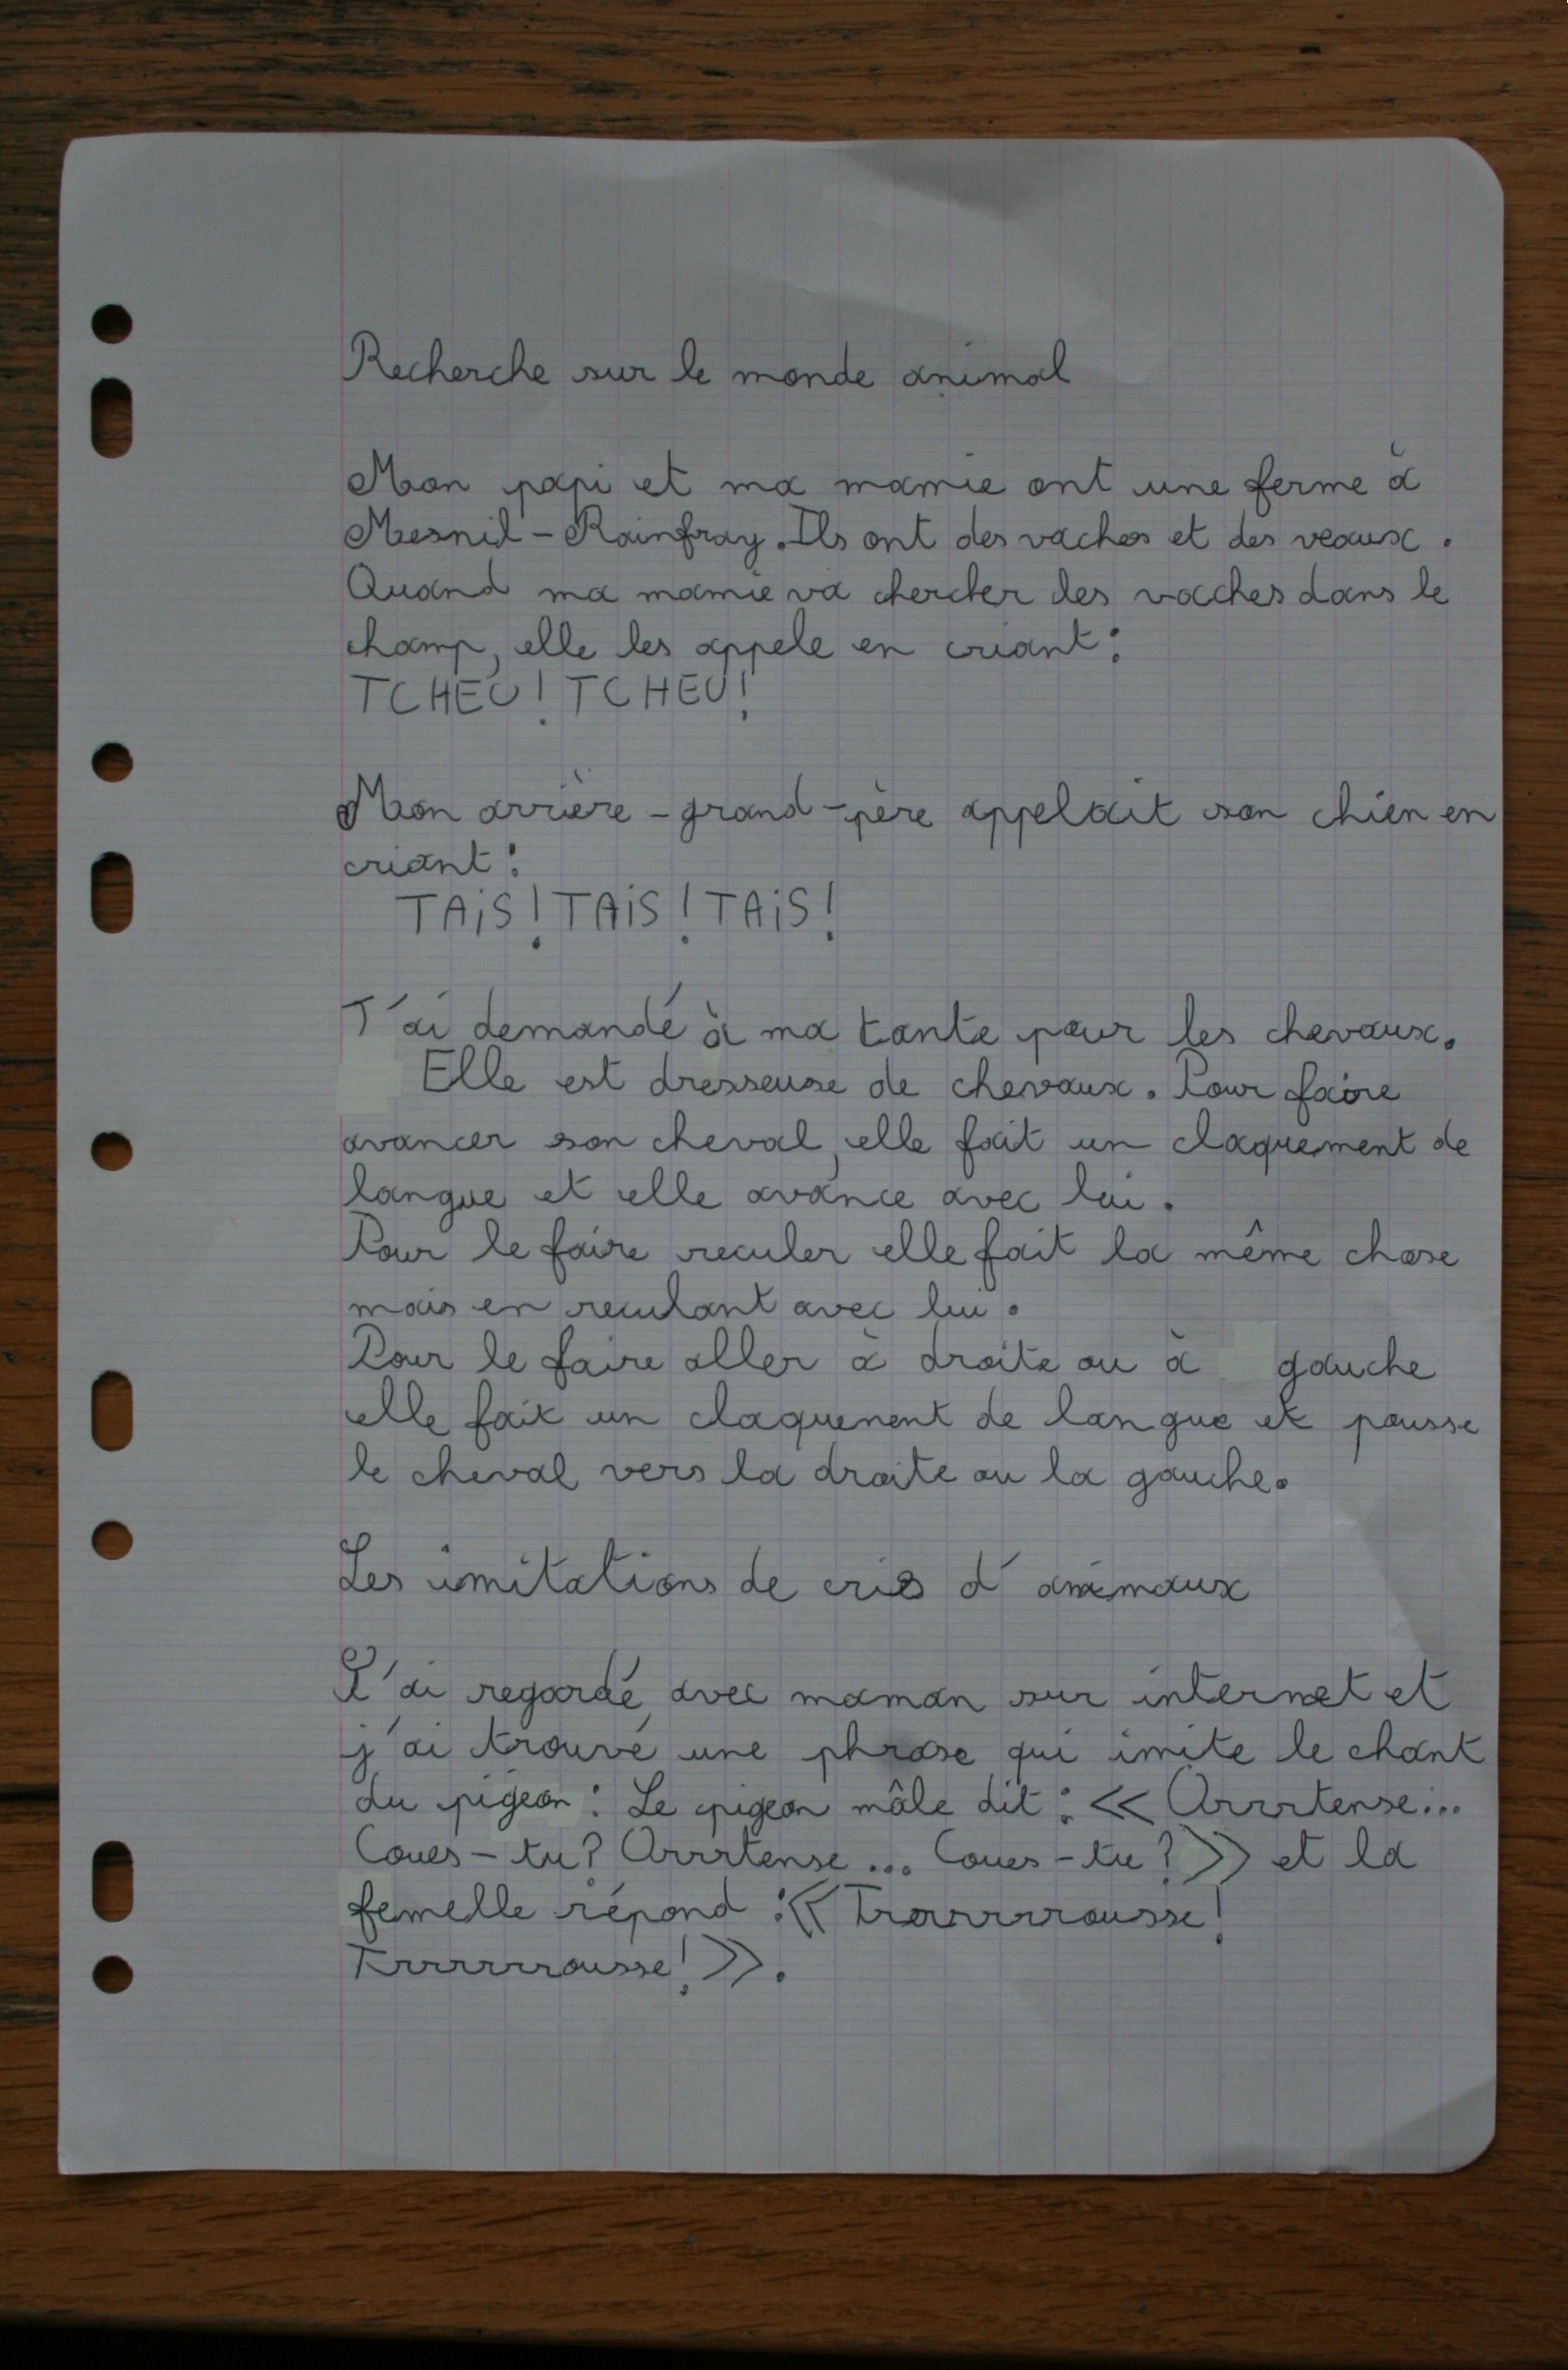 Recherche sur le monde animal
Mon papi et ma mamie ont une ferme à
Mesnil-Rainfray. Ils ont des vaches et des veaux.
Quand ma mamie va chercher les vaches dans le
champ, elle les appele en criant :
TCHEU ! TCHEU !
Mon arrière-grand-père appelait son chien en
criant :
TAiS ! TAiS ! TAiS !
J'ai demandé à ma tante pour les chevaux.
Elle est dresseuse de chevaux. Pour faire
avancer son cheval, elle fait un claquement de
langue et elle avance avec lui.
Pour le faire reculer elle fait la même chose
mais en reculant avec lui.
Pour le faire aller à droite ou à gauche
elle fait un claquement de langue et pousse
le cheval vers la droite ou la gauche.
Les imitations de cris d'animaux
J'ai regardé avec maman sur internet et
j'ai trouvé une phrase qui imite le chant
du pigeon : Le pigeon mâle dit : << Orrrtense...
Coues-tu ? Orrrtense ... Coues-tu ? >> et la
femelle répond : << Trrrrrrrousse !
Trrrrrrrousse ! >>.